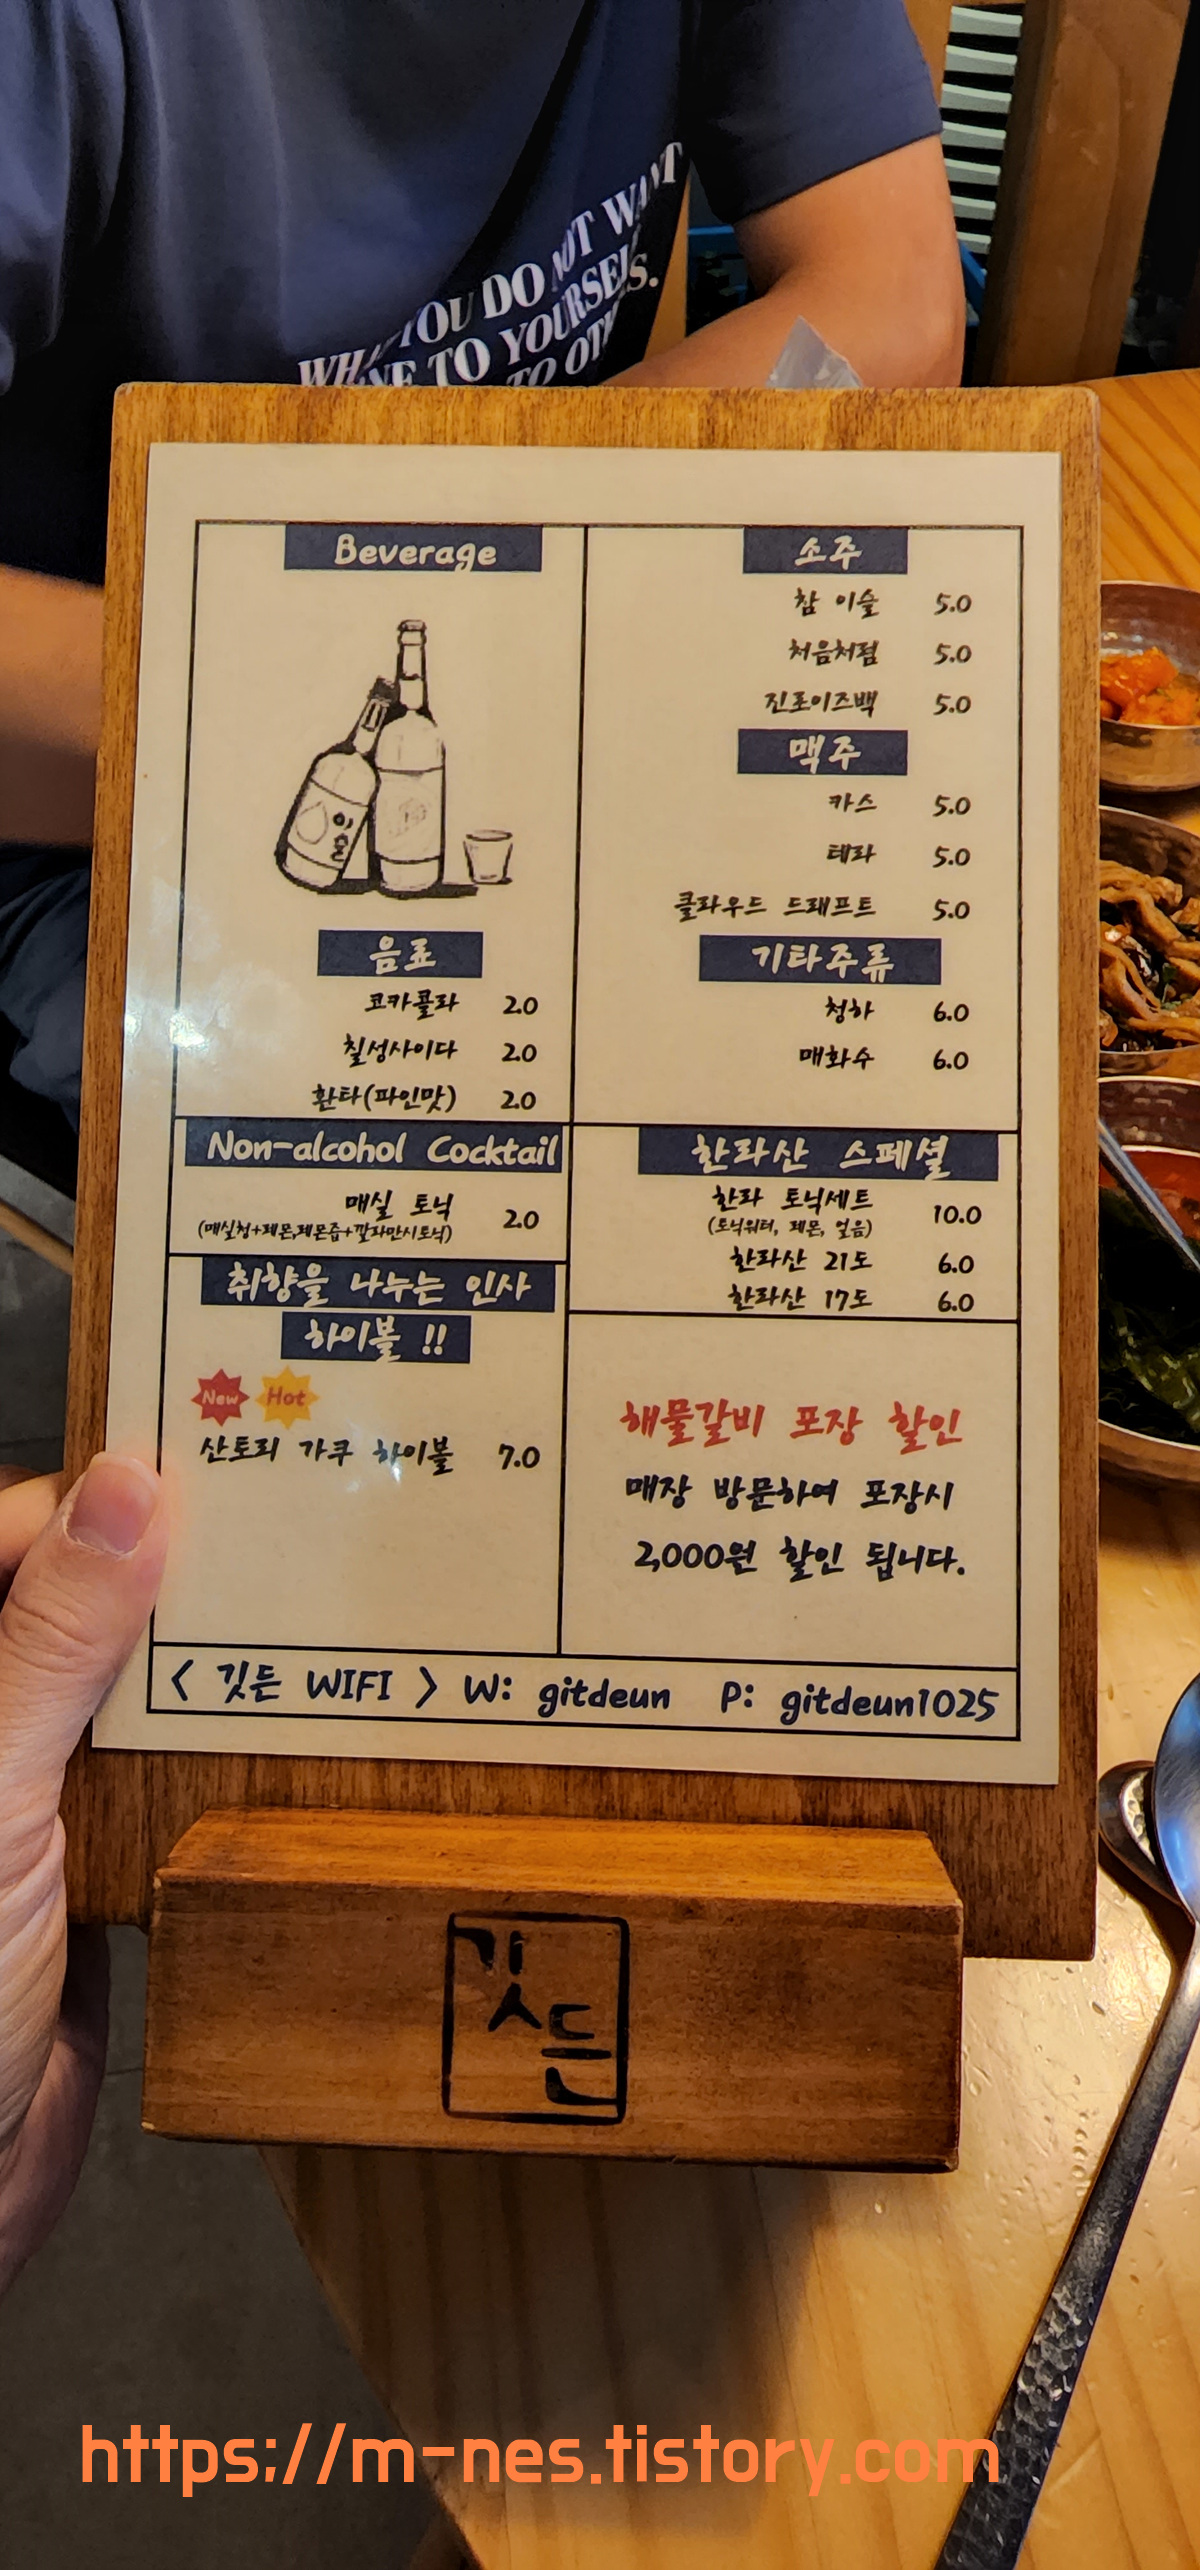 YOU DO NOT WANT
TO YOURSELVES.
TO
Beverage
이슬
음료
코카콜라 2.0
칠성사이다 2.0
환타(파인맛) 2.0
Non-alcohol Cocktail
매실 토닉 2.0
(매실청+레몬,레몬즙+깔라만시토닉)
취향을 나누는 인사
하이볼 !!
New Hot
산토리 가쿠 하이볼 7.0
소주
참 이슬 5.0
처음처럼 5.0
진로이즈백 5.0
맥주
카스 5.0
테라 5.0
클라우드 드래프트 5.0
기타주류
청하 6.0
매화수 6.0
한라산 스페셜
한라 토닉세트 10.0
(토닉워터, 레몬, 얼음)
한라산 21도 6.0
한라산 17도 6.0
해물갈비 포장 할인
매장 방문하여 포장시
2,000원 할인 됩니다.
< 깃든 WIFI > W: gitdeun P: gitdeun1025
깃든
https://m-nes.tistory.com